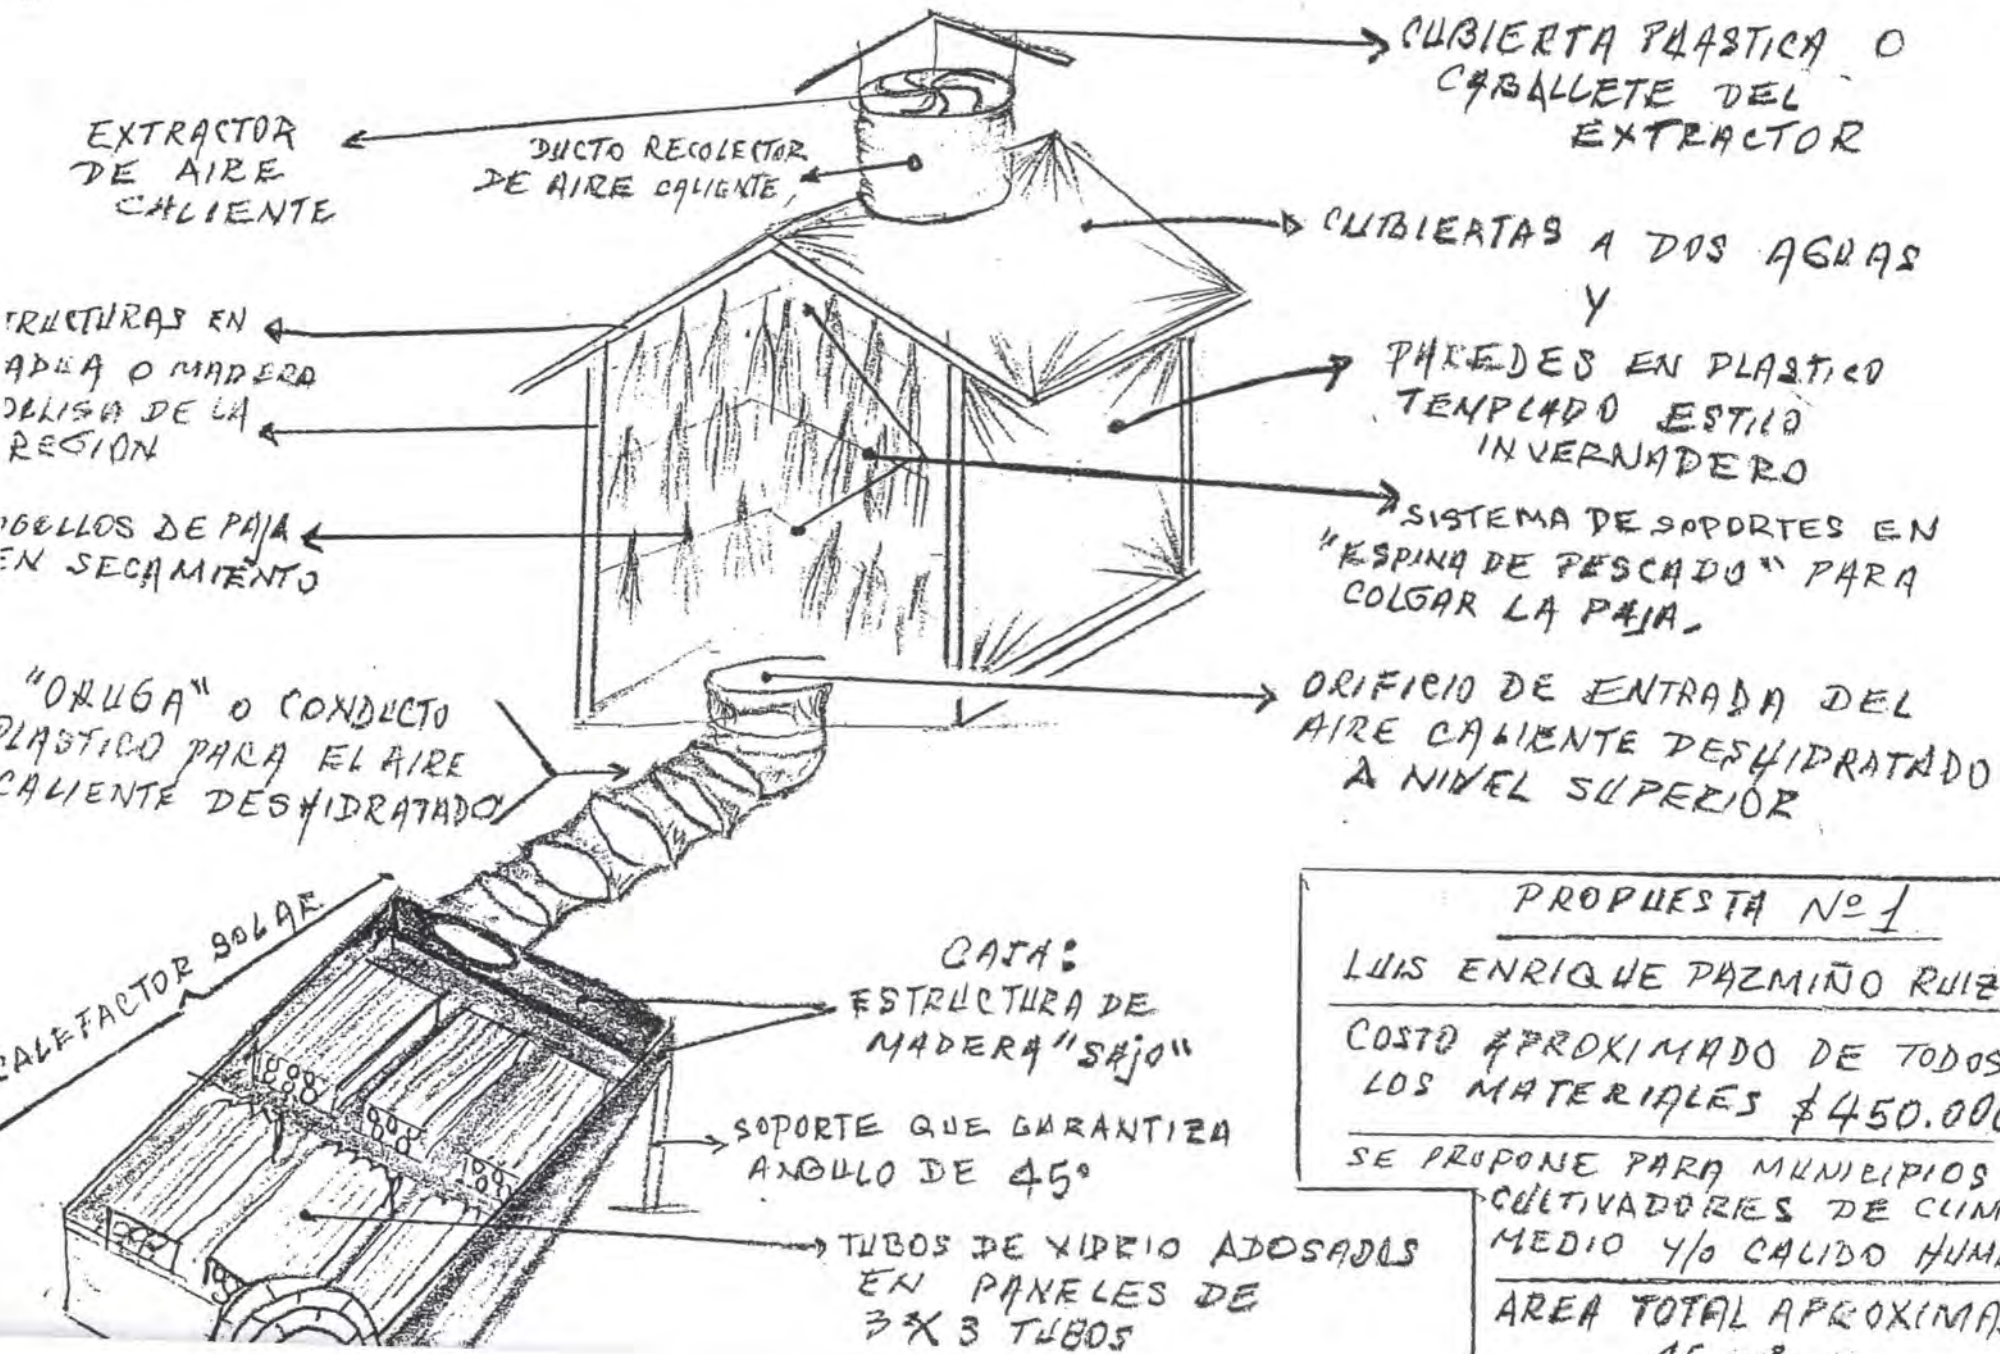 CUBIERTA PLASTICA O
CABALLETE DEL
EXTRACTOR
EXTRACTOR
DE AIRE
CALIENTE
DUCTO RECOLECTOR
DE AIRE CALIENTE
CUBIERTAS A DOS AGUAS
Y
PAREDES EN PLASTICO
TEMPLADO ESTILO
INVERNADERO
TRUCTURAS EN
ADUA O MADERA
OLLISA DE LA
REGION
OGOLLOS DE PAJA
EN SECAMIENTO
SISTEMA DE SOPORTES EN
"ESPINA DE PESCADO" PARA
COLGAR LA PAJA.
"ORUGA" O CONDUCTO
PLASTICO PARA EL AIRE
CALIENTE DESHIDRATADO
ORIFICIO DE ENTRADA DEL
AIRE CALIENTE DESHIDRATADO
A NIVEL SUPERIOR
CALEFACTOR SOLAR
CAJA:
ESTRUCTURA DE
MADERA "SAJO"
SOPORTE QUE GARANTIZA
ANGULO DE 45°
TUBOS DE VIDRIO ADOSADOS
EN PANELES DE
3 X 3 TUBOS
PROPUESTA Nº 1
LUIS ENRIQUE PAZMIÑO RUIZ
COSTO APROXIMADO DE TODOS
LOS MATERIALES $450.000
SE PROPONE PARA MUNICIPIOS
CULTIVADORES DE CLIM
MEDIO Y/O CALIDO HUM
AREA TOTAL APROXIMA